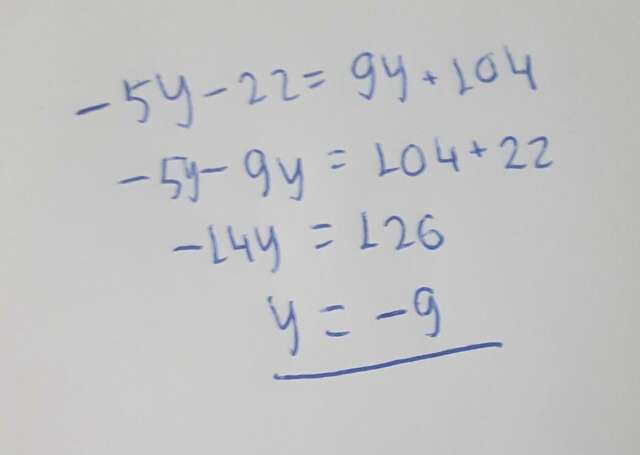 -5y-22= 9y+104
-5y-9y = 104+22
-14y = 126
y = -9